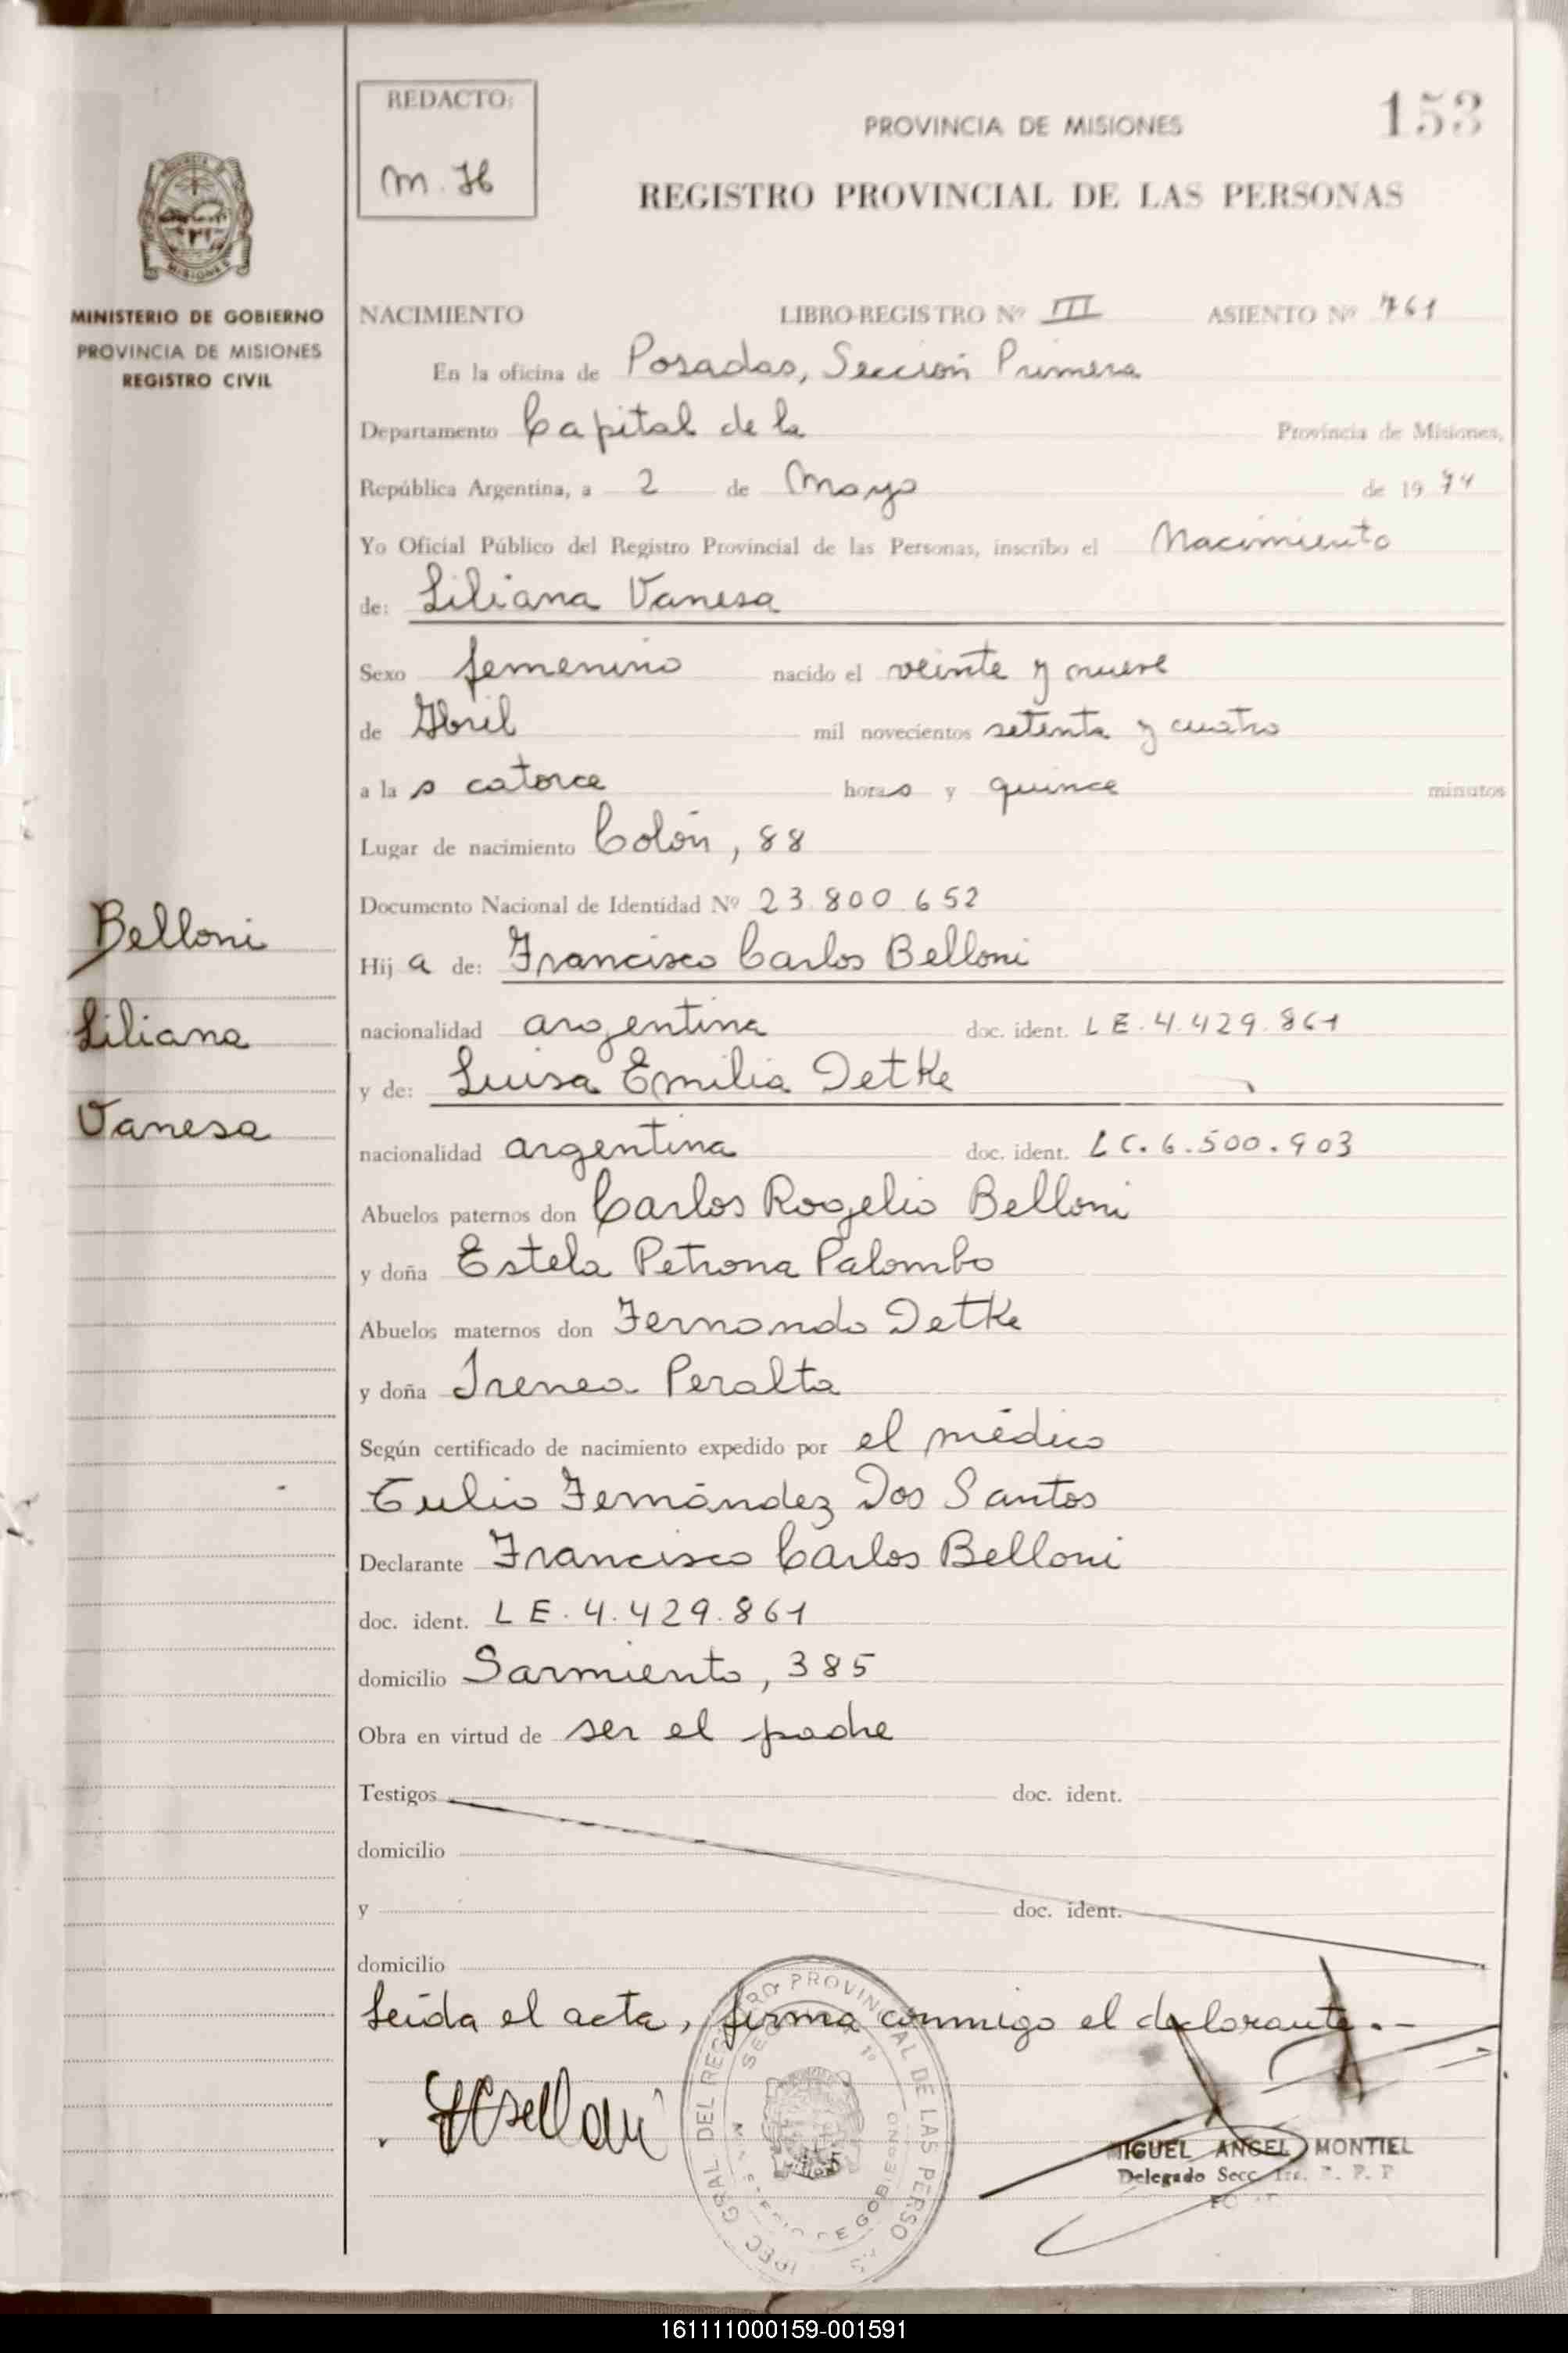 REDACTO:
M. H
PROVINCIA DE MISIONES
153
REGISTRO PROVINCIAL DE LAS PERSONAS
MISIONES
MINISTERIO DE GOBIERNO
PROVINCIA DE MISIONES
REGISTRO CIVIL
NACIMIENTO LIBRO-REGISTRO Nº III ASIENTO Nº 761
En la oficina de Posadas, Sección Primera
Departamento Capital de la Provincia de Misiones,
República Argentina, a 2 de Mayo de 1974
Yo Oficial Público del Registro Provincial de las Personas, inscribo el Nacimiento
de: Liliana Vanesa
Sexo femenino nacido el veinte y nueve
de Abril mil novecientos setenta y cuatro
a la s catorce horas y quince minutos
Lugar de nacimiento Colón, 88
Documento Nacional de Identidad Nº 23.800.652
Belloni
Hij a de: Francisco Carlos Belloni
Liliana
nacionalidad argentina doc. ident. L E. 4.429.861
y de: Luisa Emilia Detke
Vanesa
nacionalidad argentina doc. ident. L C. 6.500.903
Abuelos paternos don Carlos Rogelio Belloni
y doña Estela Petrona Palombo
Abuelos maternos don Fernando Detke
y doña Irenea Peralta
Según certificado de nacimiento expedido por el médico
Tulio Fernández Dos Santos
Declarante Francisco Carlos Belloni
doc. ident. L E. 4.429.861
domicilio Sarmiento, 385
Obra en virtud de ser el padre
Testigos doc. ident.
domicilio
y doc. ident.
domicilio
Leída el acta, firma conmigo el declarante.-
GRAL DEL REGISTRO PROVINCIAL DE LAS PERSO
DE GOBIERNO
MIGUEL ANGEL MONTIEL
Delegado Secc. 1ra. R. P. P
161111000159-001591